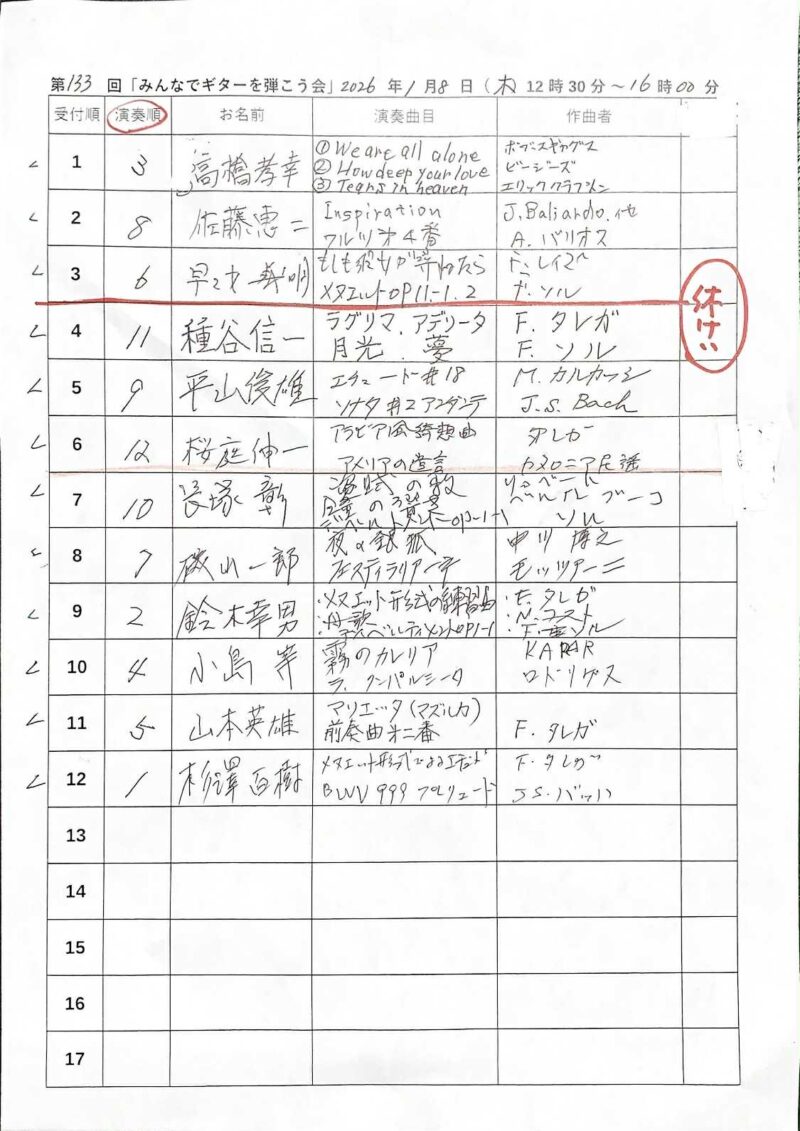 第133回「みんなでギターを弾こう会」2026年1月8日(木)12時30分〜16時00分
受付順 演奏順 お名前 演奏曲目 作曲者
1 3 高橋孝幸 ①We are all alone ボブスキャッグス
②How deep your love ビージーズ
③Tears in heaven エリッククラプトン
2 8 佐藤恵二 Inspiration J. Baliardo. 他
ワルツ第4番 A. バリオス
3 6 もしも彼女が尋ねたら
メヌエットOP11-1.2 F. ソル
休けい
4 11 種谷信一 ラグリマ. アデリータ F. タレガ
月光. 夢 F. ソル
5 9 平山俊雄 エチュード#18 M. カルカッシ
ソナタ#2アンダンテ J.S. Bach
6 12 桜庭伸一 アラビア風綺想曲 タレガ
アメリアの遺言 カタロニア民謡
7 10 長塚彰 OP-1-1 ソル
8 7 磯山一郎 夜の銀狐 中川博之
モッツァーニ
9 2 鈴木幸男 ・メヌエット形式の練習曲 ・F. タレガ
・舟歌 ・N. コスト
OP1-1 ・F. ソル
10 4 小島 霧のカレリア KARAR
ラ. クンパルシータ ロドリゲス
11 5 山本英雄 マリエッタ(マズルカ)
前奏曲第二番 F. タレガ
12 1 杉澤百樹 メヌエット形式による F. タレガ
BWV 999 プレリュード J.S. バッハ
13
14
15
16
17